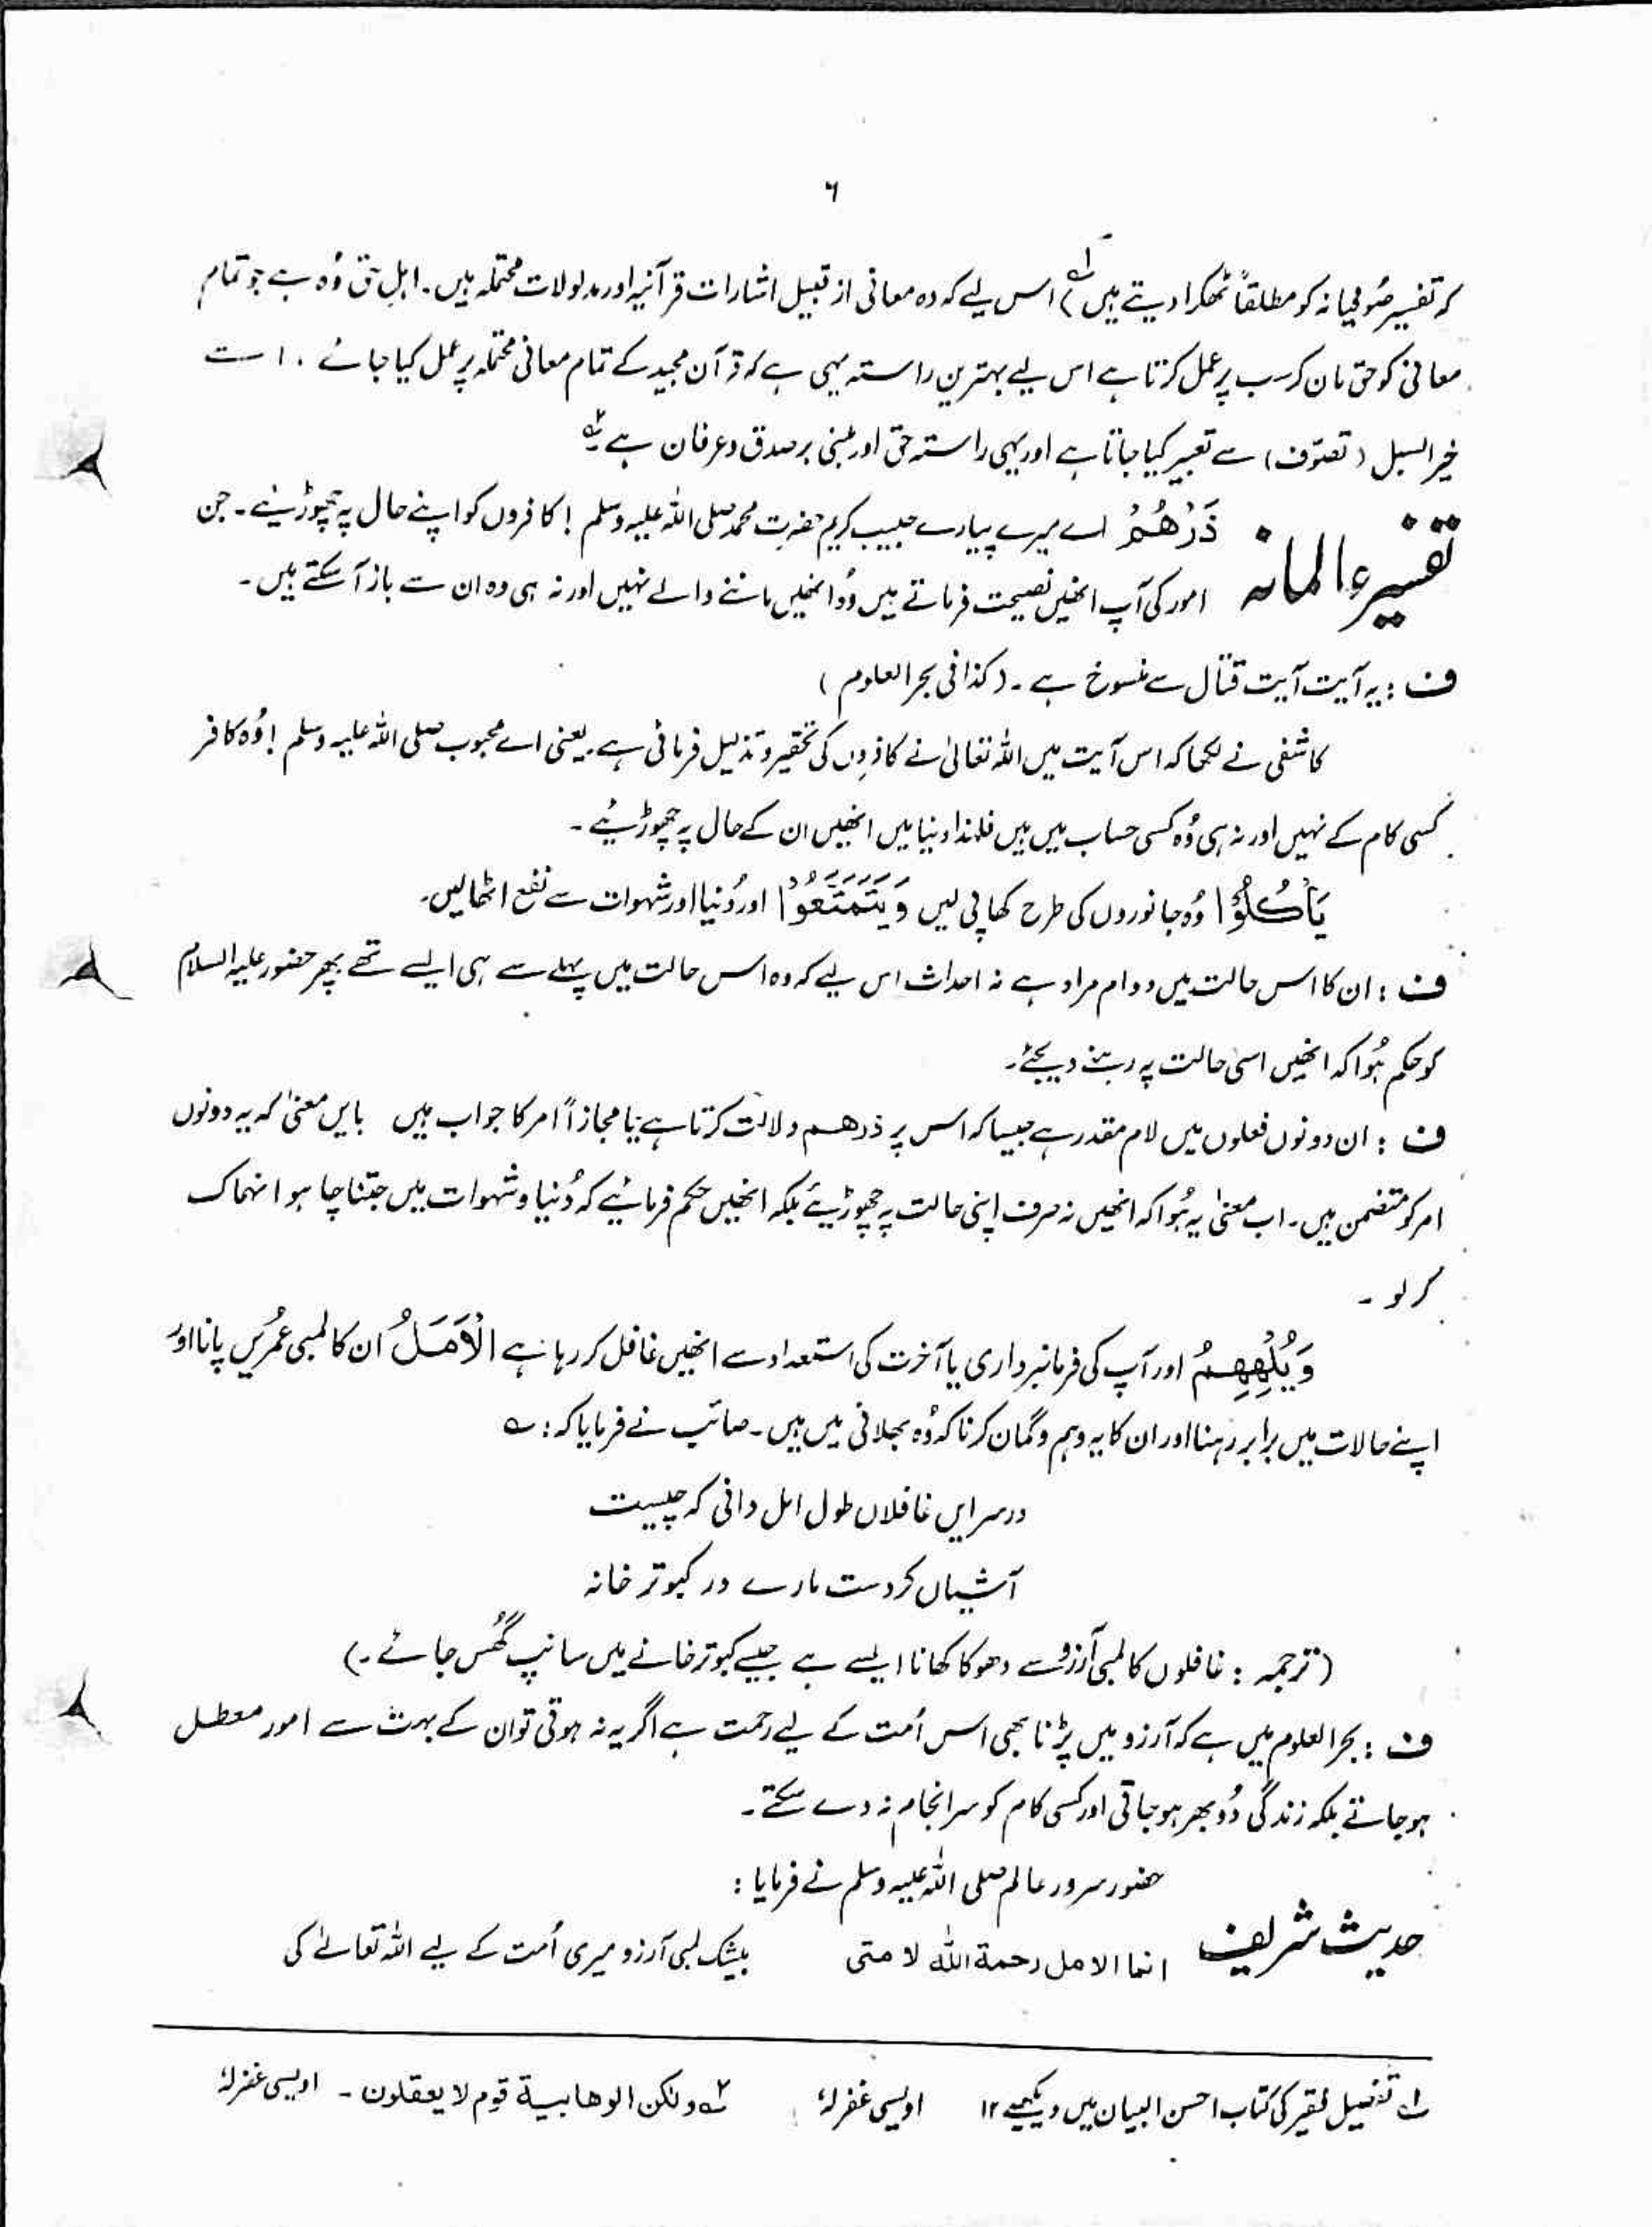 ٦
کہ تفسیر صُوفیانہ کو مطلقاً ٹھکرا دیتے ہیں ؂۱) اس لیے کہ وہ معانی از قبیل اشارات قرآنیہ اور مدلولات محتملہ ہیں۔ اہلِ حق وُہ ہے جو تمام
معانی کو حق مان کر سب پر عمل کرتا ہے اس لیے بہترین راستہ یہی ہے کہ قرآن مجید کے تمام معانی محتملہ پر عمل کیا جائے ۔ اسے
خیر السبل (تصوّف) سے تعبیر کیا جاتا ہے اور یہی راستہ حق اور مبنی بر صدق و عرفان ہے ؂۲
تفسیر عالمانہ ذَرْهُمْ اے میرے پیارے حبیب کریم حضرت محمد صلی اللہ علیہ وسلم ! کافروں کو اپنے حال پہ چھوڑیئے۔ جن
امور کی آپ انھیں نصیحت فرماتے ہیں وُہ انھیں ماننے والے نہیں اور نہ ہی وہ ان سے باز آ سکتے ہیں۔
ف : یہ آیت آیت قتال سے منسوخ ہے۔ (کذا فی بحر العلوم)
کاشفی نے لکھا کہ اس آیت میں اللہ تعالیٰ نے کافروں کی تحقیر و تذلیل فرمائی ہے۔ یعنی اے محبوب صلی اللہ علیہ وسلم ! وُہ کافر
کسی کام کے نہیں اور نہ ہی وُہ کسی حساب میں ہیں فلہٰذا دنیا میں انھیں ان کے حال پہ چھوڑیئے ۔
يَأْكُلُوْا وُہ جانوروں کی طرح کھا پی لیں وَيَتَمَتَّعُوْا اور دُنیا اور شہوات سے نفع اٹھا لیں۔
ف : ان کا اس حالت میں دوام مراد ہے نہ احداث اس لیے کہ وہ اس حالت میں پہلے سے ہی ایسے تھے پھر حضور علیہ السلام
کو حکم ہُوا کہ انھیں اسی حالت پہ رہنے دیجئے۔
ف : ان دونوں فعلوں میں لام مقدر ہے جیسا کہ اس پر ذرھم دلالت کرتا ہے یا مجازاً امر کا جواب ہیں بایں معنیٰ کہ یہ دونوں
امر کو متضمن ہیں۔ اب معنیٰ یہ ہُوا کہ انھیں نہ صرف اپنی حالت پہ چھوڑیئے بلکہ انھیں حکم فرمائیے کہ دُنیا و شہوات میں جتنا چاہو انہماک
کر لو ۔
وَيُلْهِهِمُ اور آپ کی فرمانبرداری یا آخرت کی استعداد سے انھیں غافل کر رہا ہے الْاَمَلُ ان کا لمبی عمریں پانا اور
اپنے حالات میں برابر رہنا اور ان کا یہ وہم و گمان کرنا کہ وُہ بھلائی میں ہیں۔ صائب نے فرمایا کہ : ؎
در سر ایں غافلاں طول امل دانی کہ چیست
آشیاں کردست مارے در کبوتر خانہ
(ترجمہ : غافلوں کا لمبی آرزو سے دھوکا کھانا ایسے ہے جیسے کبوتر خانے میں سانپ گُھس جائے۔)
ف : بحر العلوم میں ہے کہ آرزو میں پڑنا بھی اس اُمت کے لیے رحمت ہے اگر یہ نہ ہوتی تو ان کے بہت سے امور معطل
ہو جاتے بلکہ زندگی دُوبھر ہو جاتی اور کسی کام کو سرانجام نہ دے سکتے۔
حضور سرور عالم صلی اللہ علیہ وسلم نے فرمایا :
حدیث شریف انما الامل رحمة الله لامتی بیشک لمبی آرزو میری اُمت کے لیے اللہ تعالےٰ کی
؂۱ تفصیل فقیر کی کتاب احسن البیان میں دیکھیے ۱۲ اویسی غفرلہٗ ؂۲ ولکن الوهابية قوم لا يعقلون ۔ اویسی غفرلہٗ